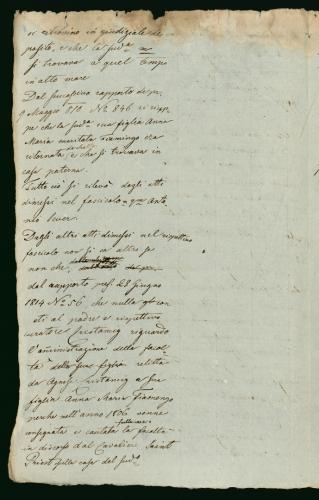 si ritrovino in giudiziale de
posito, e che la sud.a
si trovava a quel tempo
in alto mare
Dal rapporto de pr.
9 Maggio N.o 846 si rap
pe che la sud.a sua figlia Anna
Maria maritata Fiamingo era
ritornata, e che si trovava in
casa paterna.
Tutto ciò si rileva dagli atti
dimessi nel fascicolo Anto
nio
Dagli altri atti dimessi nel rispettivo
fascicolo non si ha altro se
non che,
dal rapporto pres. 28 Giugno
1814 N.o 56, che nulla
al padre e rispettivo
curatore riguardo
l'amministrazione della facol
tà della sua figlia relitta
da Agnese a sua
figlia Anna Maria Fiamengo
perche nell'anno 1806 venne
consegnata e cautata la facoltà
in discorso dal Cavaliere Saint
Priest sulla casa del sud.o